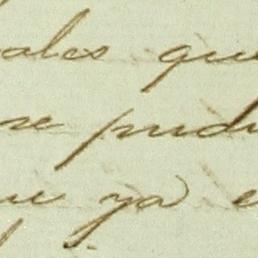 ales que
se pudi
ue ya e